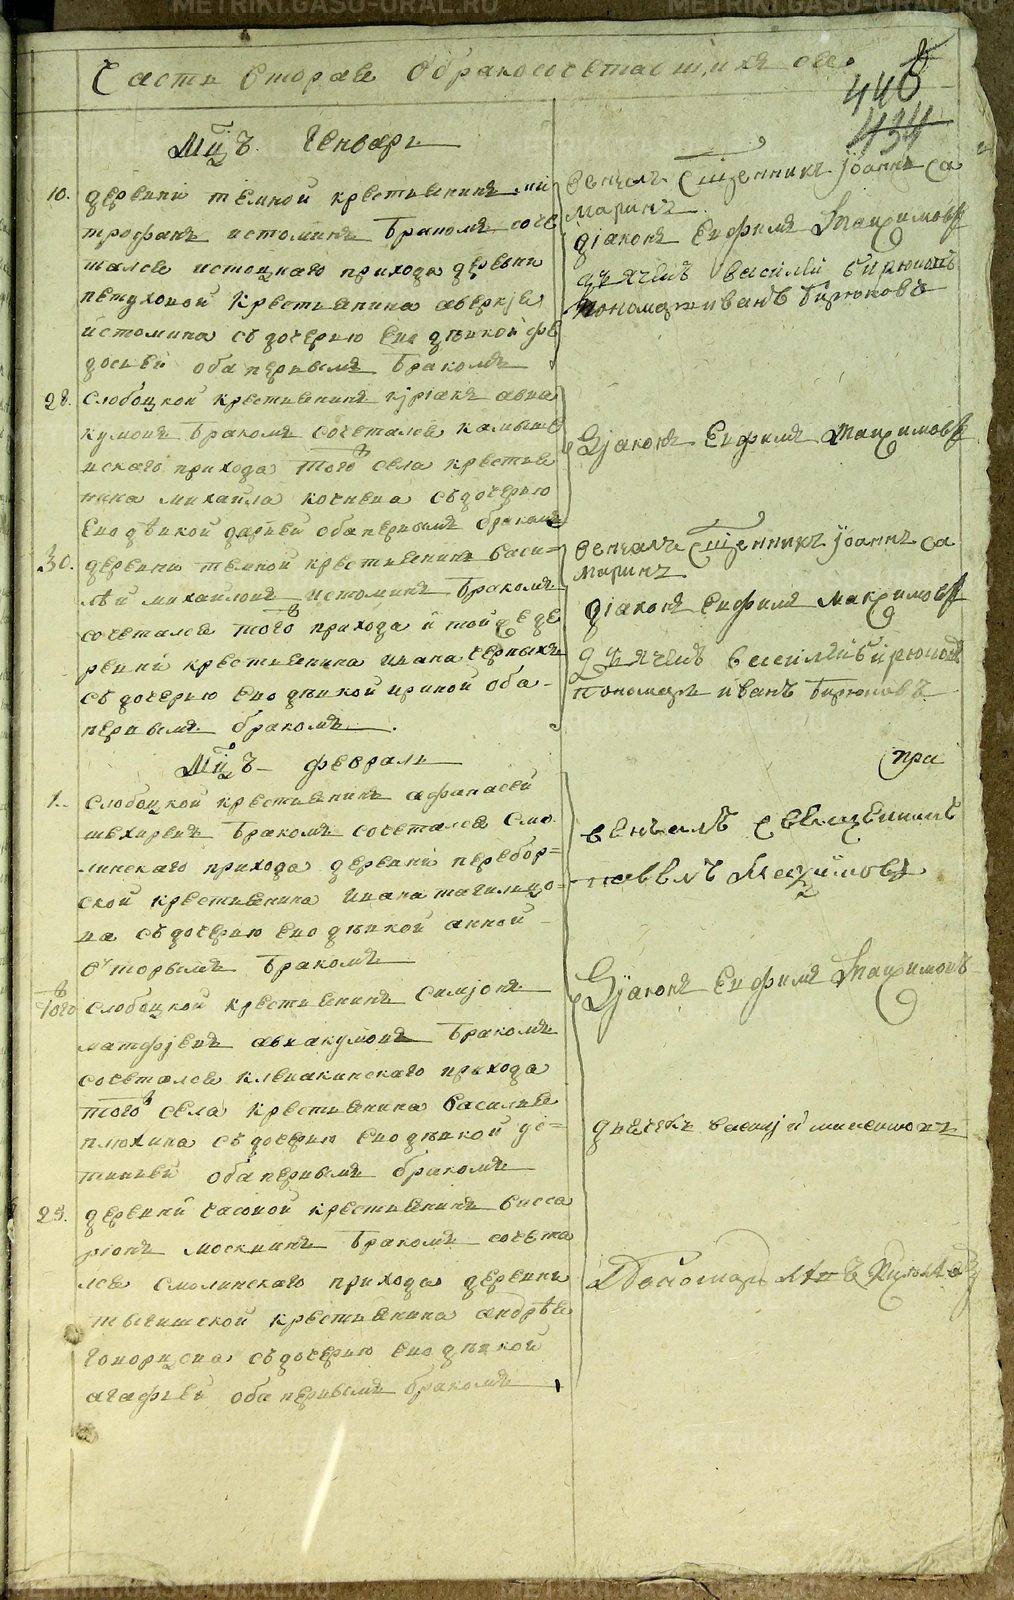 METRIKI.GASO-URAL.RU METRIKI.GASO-URAL.RU
Часть вторая о бракосочетавшихся
440
434
Мцъ Генварь
10. деревни темной крестьянинъ ми
трофанъ истоминъ бракомъ соче
тался истоцкаго прихода деревни
петуховой крестьянина аверкја
истомина съ дочерию ево дѣвкой фе
досьей оба первымъ бракомъ
28. слобоцкой крестьянинъ кѵрїакъ авва
кумовъ бракомъ сочетался камыше
нскаго прихода того села крестья
нина михаила съ дочерию
ево дѣвкой дарьей оба первымъ бракомъ
30. деревни темной крестьянинъ васи-
лѣй михайловъ истоминъ бракомъ
сочетался того прихода и той де
ревни крестьянина ивана черныхъ
съ дочерию ево дѣвкой ириной оба
первымъ бракомъ
Мцъ февраль
1. слобоцкой крестьянинъ афанасей
бракомъ сочетался смо
линскаго прихода деревни перебор=
ской крестьянина ивана
на съ дочерию ево дѣвкой анной
вторымъ бракомъ
того слобоцкой крестьянинъ симїонъ
матфїевъ аввакумовъ бракомъ
сочетался клевакинскаго прихода
того села крестьянина василья
плюхина съ дочерию ево дѣвкой
оба первымъ бракомъ
25. деревни часовой крестьянинъ висса
рїонъ москвинъ бракомъ сочета
лся смолинскаго прихода деревни
крестьянина андрѣя
съ дочерию ево дѣвкой
агафьей оба первымъ бракомъ
венчалъ Сщенникъ Їоаннъ Са
маринъ
дїаконъ Евфимъ Максимовъ
дьячекъ василей бирюковъ
пономарь иванъ бирюковъ
Дїаконъ Евфимъ Максимовъ
венчалъ Сщенникъ Їоаннъ Са
маринъ
дїаконъ евфимъ максимовъ
дьячекъ василей бирюковъ
пономарь иванъ бирюковъ
при
венчалъ священникъ
павелъ
Дїаконъ Евфимъ Максимовъ
дьячекъ
METRIKI.GASO-URAL.RU METRIKI.GASO-URAL.RU